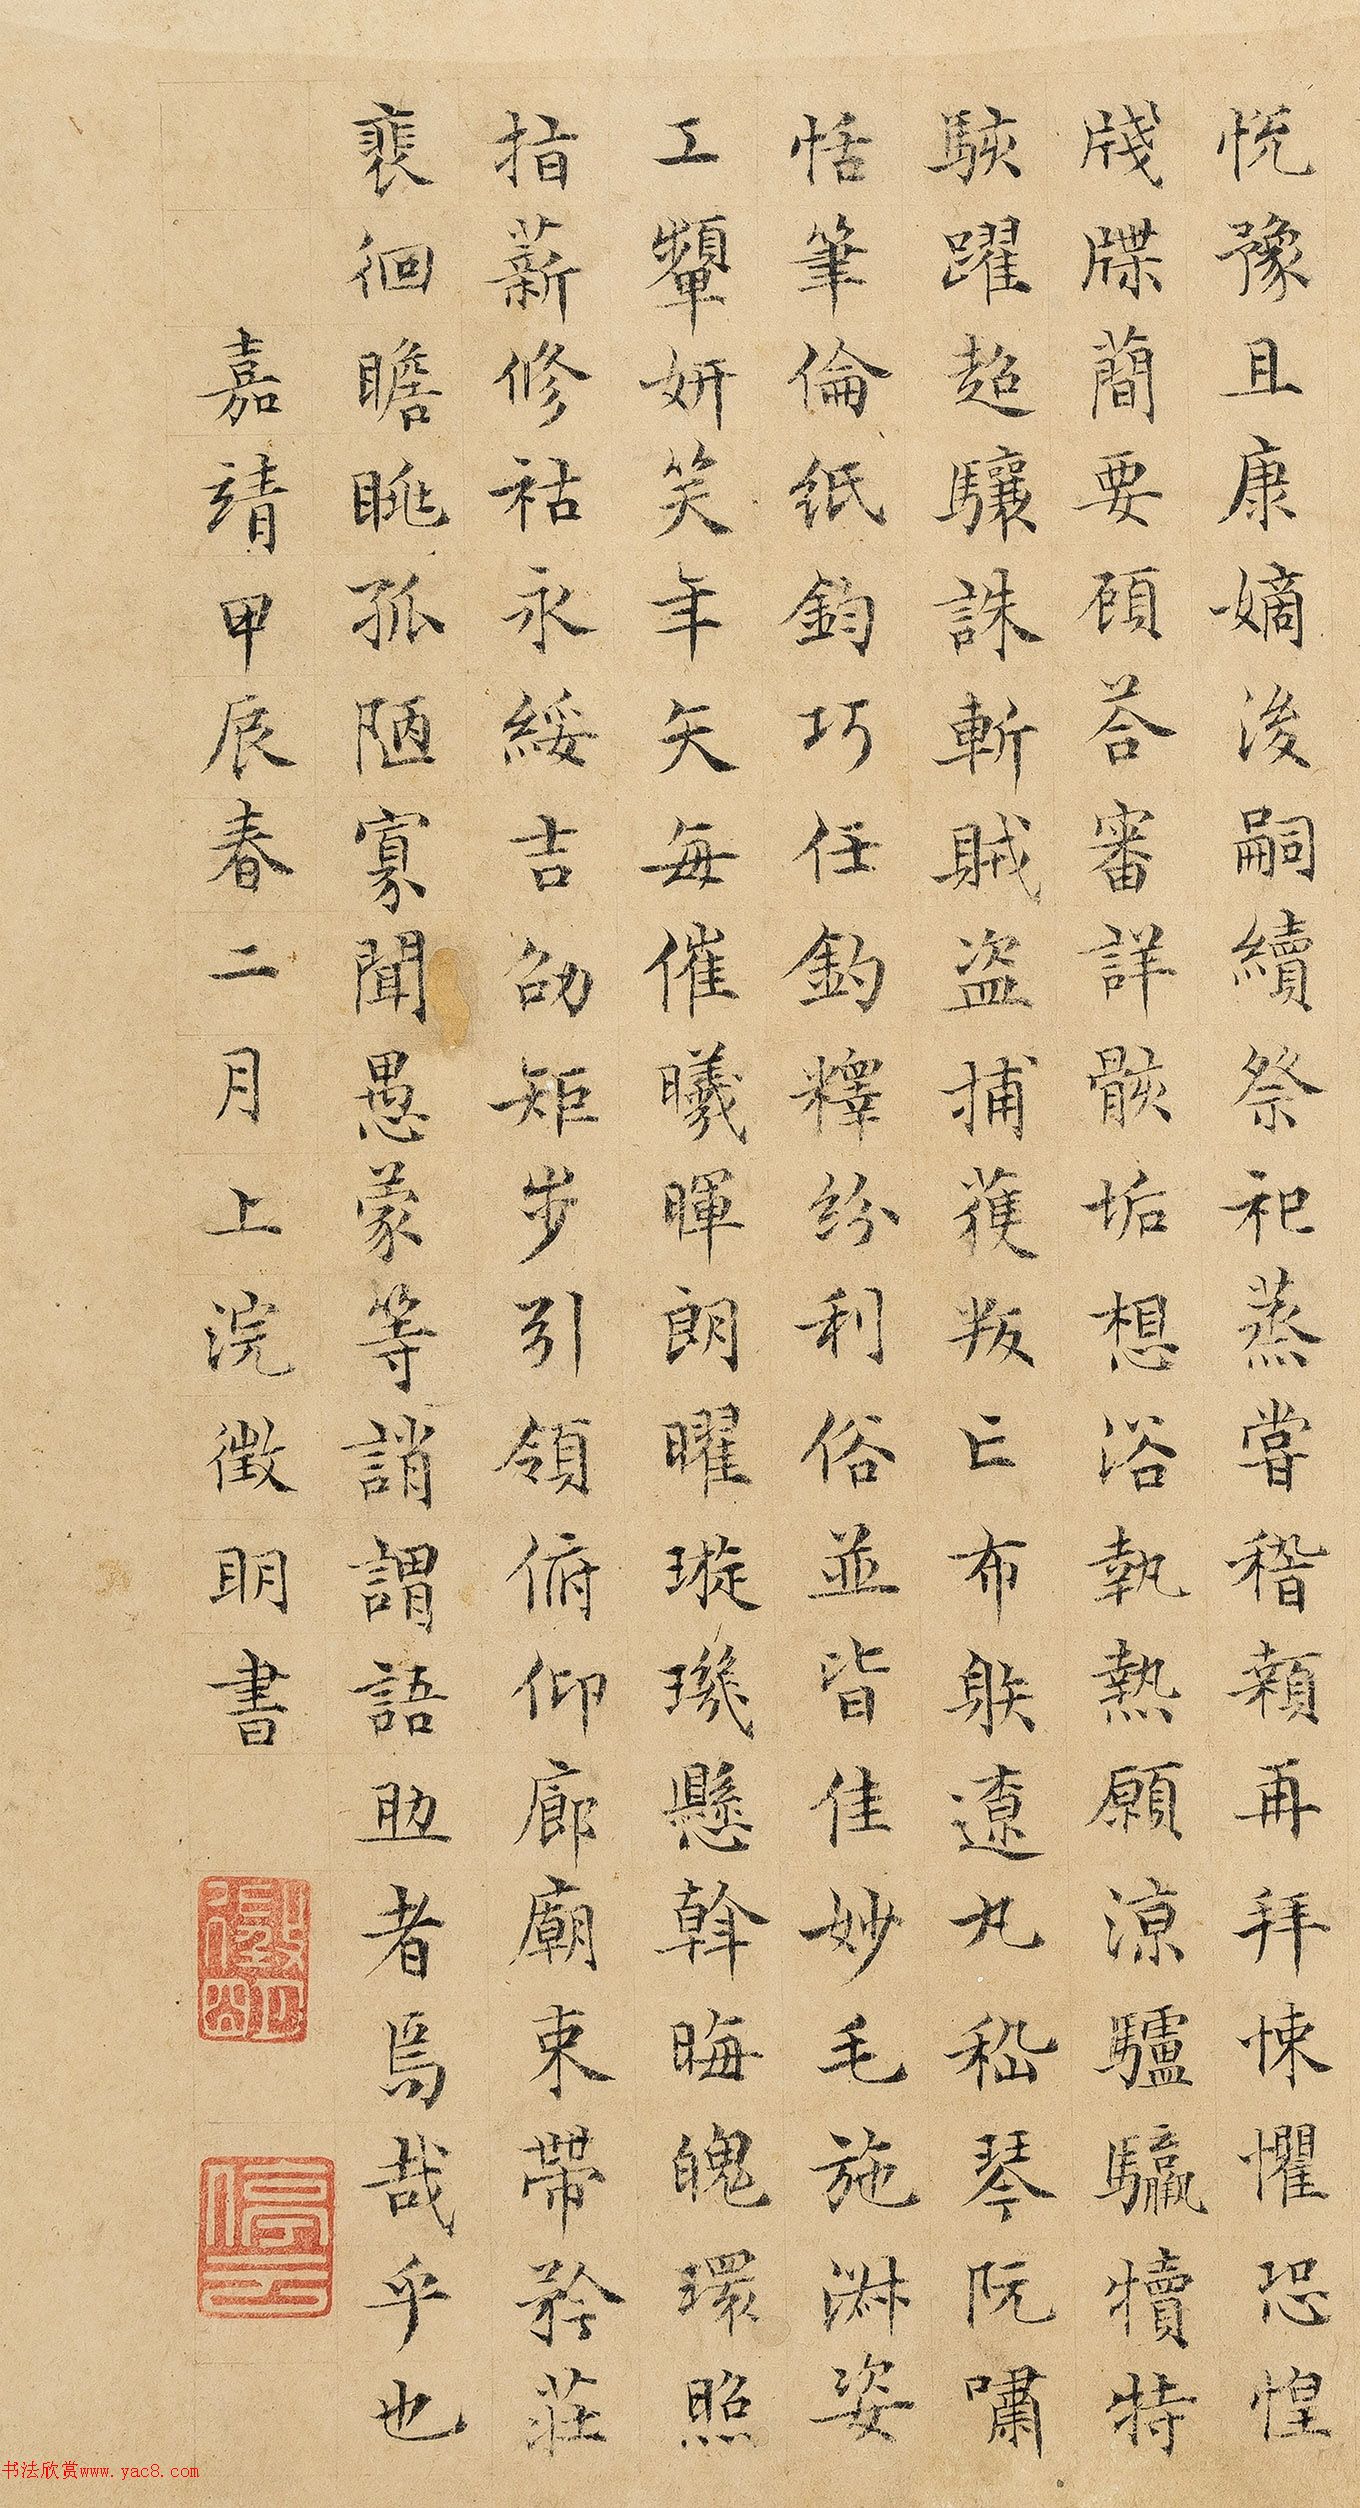 悅豫且康嫡後嗣續祭祀蒸嘗稽顙再拜悚懼恐惶
牋牒簡要顧荅審詳骸垢想浴執熱願涼驢騾犢特
駭躍超驤誅斬賊盗捕獲叛亡布躲遼丸嵇琴阮嘯
恬筆倫紙鈞巧任釣釋紛利俗並皆佳妙毛施淋姿
工顰妍笑年矢每催曦暉朗曜璇璣懸斡晦魄環照
指薪修祜永綏吉劭矩步引領俯仰廊廟束帶矜莊
裴徊瞻眺孤陋寡聞愚蒙等誚謂語助者焉哉乎也
嘉靖甲辰春二月上浣徵明書
徵明
停雲
书法欣赏www.yac8.com